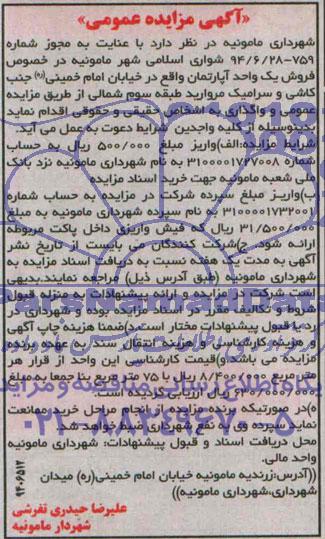 «آگهی مزایده عمومی»
شهرداری مامونیه در نظر دارد با عنایت به مجوز شماره
۷۵۹-۹۴/۶/۲۸ شورای اسلامی شهر مامونیه در خصوص
فروش یک واحد آپارتمان واقع در خیابان امام خمینی(ره) جنب
کاشی و سرامیک مروارید طبقه سوم شمالی از طریق مزایده
عمومی و واگذاری به اشخاص حقیقی و حقوقی اقدام نماید
بدینوسیله از کلیه واجدین شرایط دعوت به عمل می آید.
شرایط مزایده:الف)واریز مبلغ ۵۰۰/۰۰۰ ریال به حساب
شماره ۳۱۰۰۰۰۱۷۲۷۰۰۸ به نام شهرداری مامونیه نزد بانک
ملی شعبه مامونیه جهت خرید اسناد مزایده
ب)واریز مبلغ سپرده شرکت در مزایده به حساب شماره
۳۱۰۰۰۰۱۷۳۲۰۰۱ به نام سپرده شهرداری مامونیه به مبلغ
۳۱/۵۰۰/۰۰۰ ریال که فیش واریزی داخل پاکت مربوطه
ارائه شود. ج)شرکت کنندگان می بایست از تاریخ نشر
آگهی به مدت یک هفته نسبت به دریافت اسناد مزایده به
شهرداری مامونیه (طبق آدرس ذیل) مراجعه نمایند.بدیهی
است شرکت در مزایده و ارائه پیشنهادات به منزله قبول
شروط و تکالیف مقرر در اسناد مزایده بوده و شهرداری در
رد یا قبول پیشنهادات مختار است.د)ضمنا هزینه چاپ آگهی
و هزینه کارشناسی و هزینه انتقال سند به عهده برنده
مزایده می باشد.و)قیمت کارشناسی این واحد از قرار هر
متر مربع ۸/۴۰۰/۰۰۰ ریال با ۷۵ متر مربع بنا جمعا به مبلغ
۶۳۰/۰۰۰/۰۰۰ ریال ارزیابی گردیده است.
ه)در صورتیکه برنده مزایده از انجام مراحل خرید ممانعت
نماید سپرده وی به نفع شهرداری ضبط خواهد شد.
محل دریافت اسناد و قبول پیشنهادات: شهرداری مامونیه
واحد مالی.
((آدرس:زرندیه مامونیه خیابان امام خمینی(ره) میدان
شهرداری،شهرداری مامونیه))
علیرضا حیدری تفرشی
شهردار مامونیه
۹۴۰۶۵۱۲
پایگاه اطلاع رسانی مناقصه و مزایده
۰۲۱-۸۸۳۴۹۶۷۰-۵